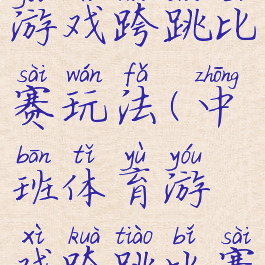 游戏跨跳比
sài wán fǎ zhōng
赛玩法(中
bān tǐ yù yóu
班体育游
xì kuà tiào bǐ sài
戏跨跳比赛